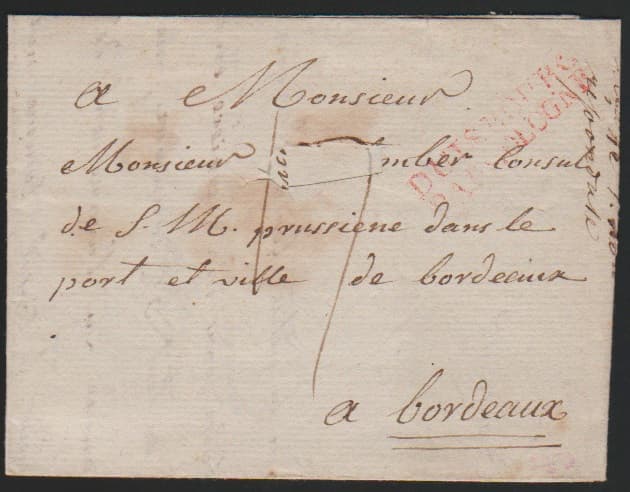 a Monsieur
Monsieur mber Consul
de S. M. prussiene dans le
port et ville de bordeaux
a bordeaux
17
DUISBOURG